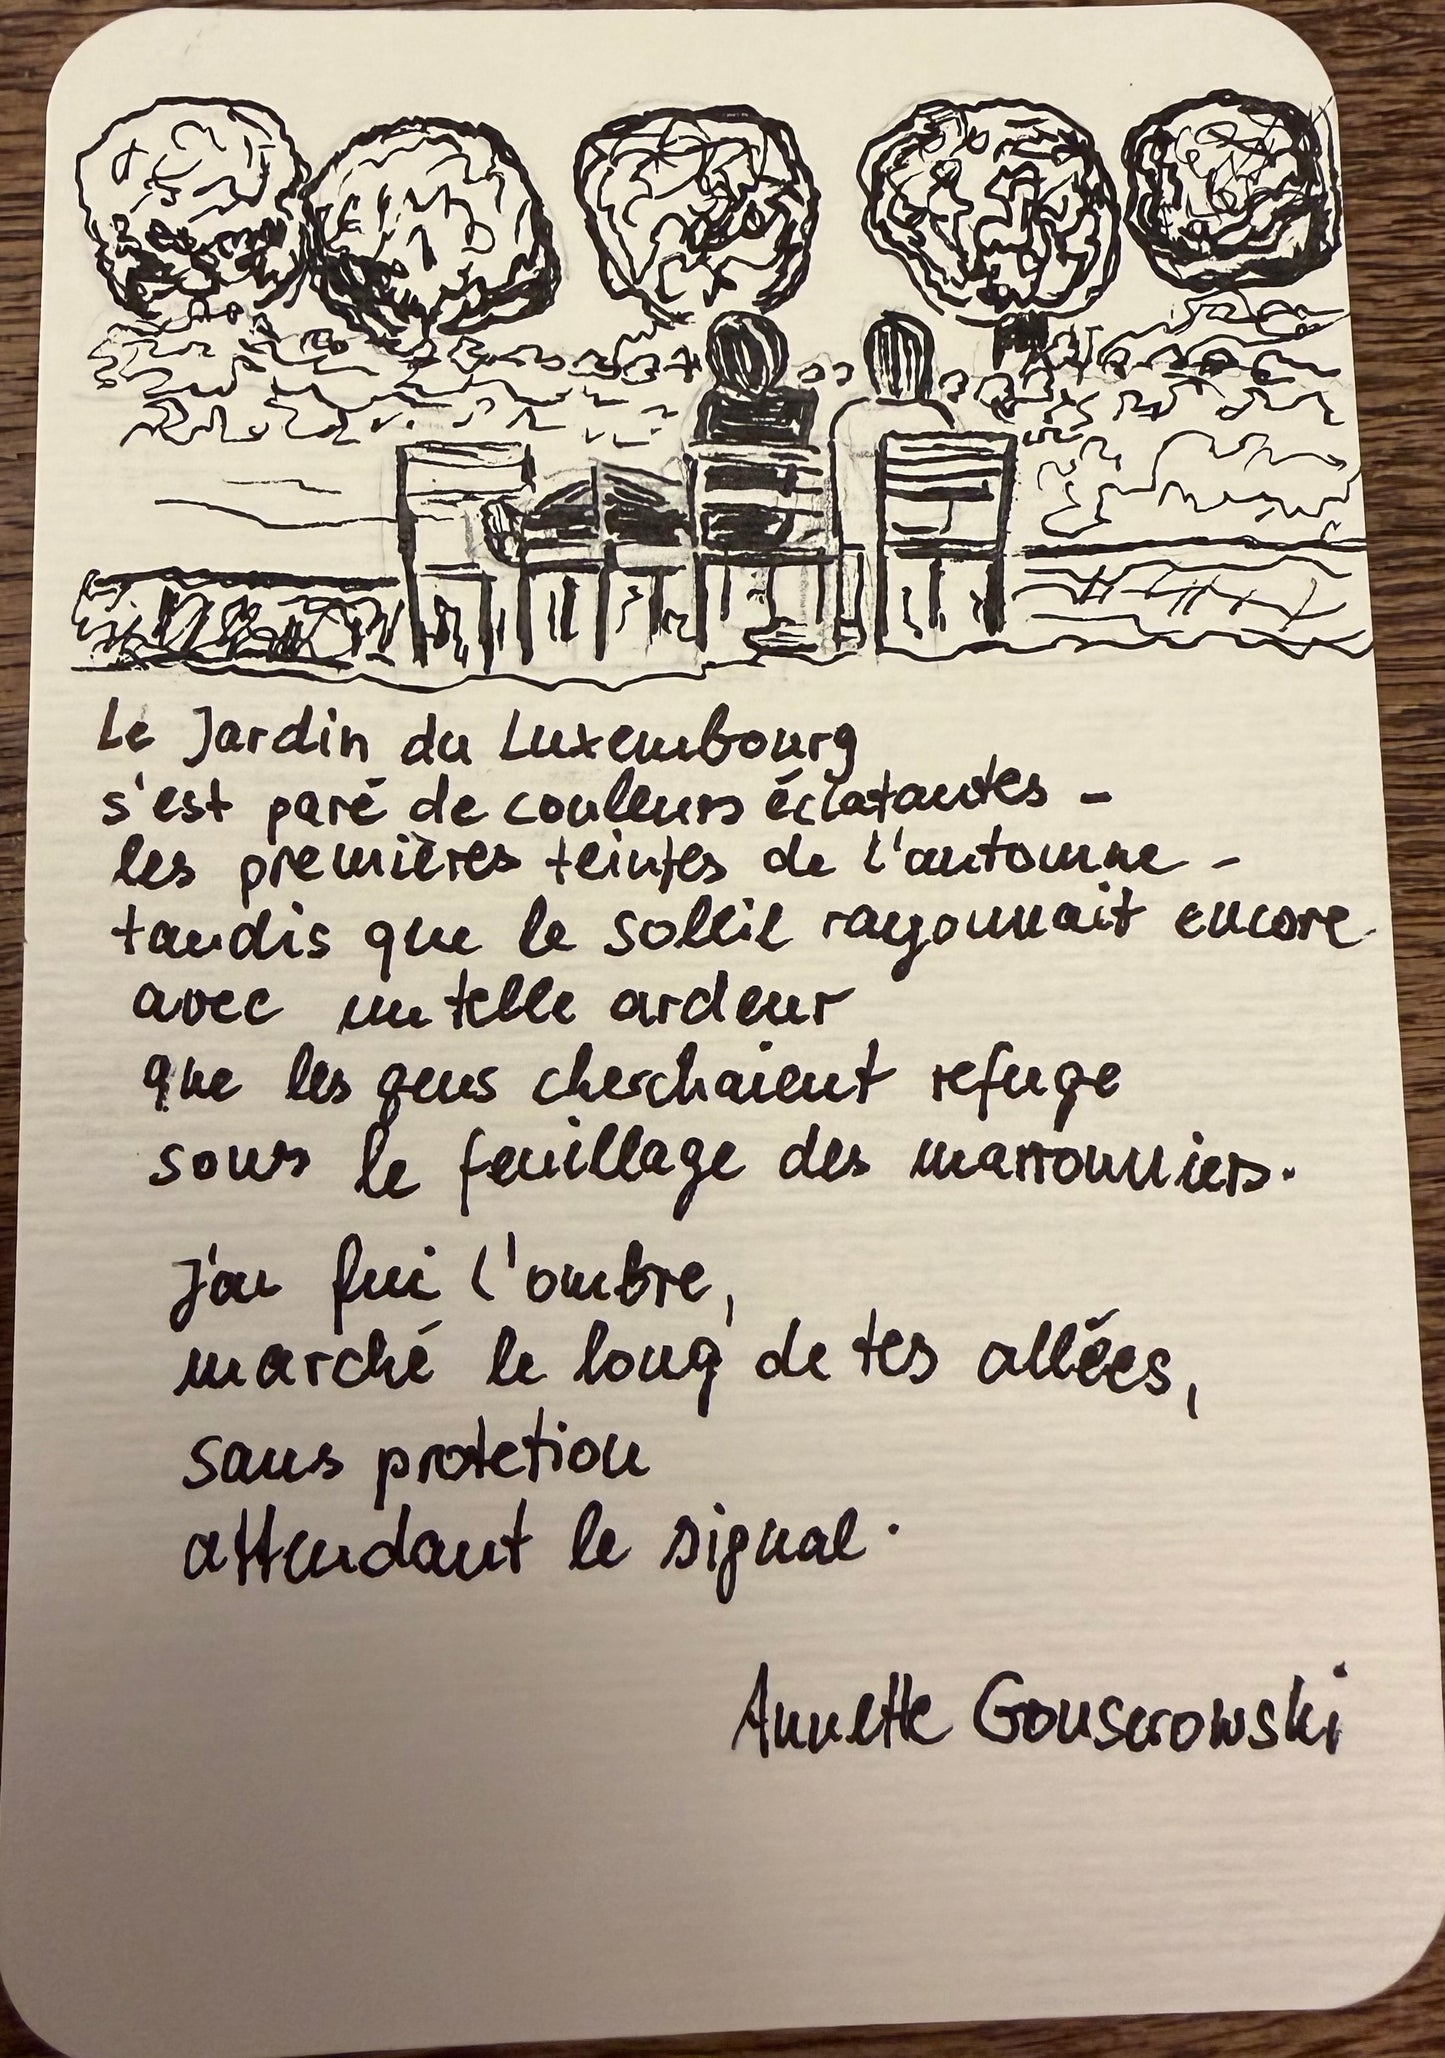 Le Jardin du Luxembourg
s'est paré de couleurs éclatantes -
les premières teintes de l'automne -
tandis que le soleil rayonnait encore
avec un telle ardeur
que les gens cherchaient refuge
sous le feuillage des marronniers.
J'ai fui l'ombre,
marché le long de tes allées,
sans protetion
attendant le signal.
Annette Gonserowski